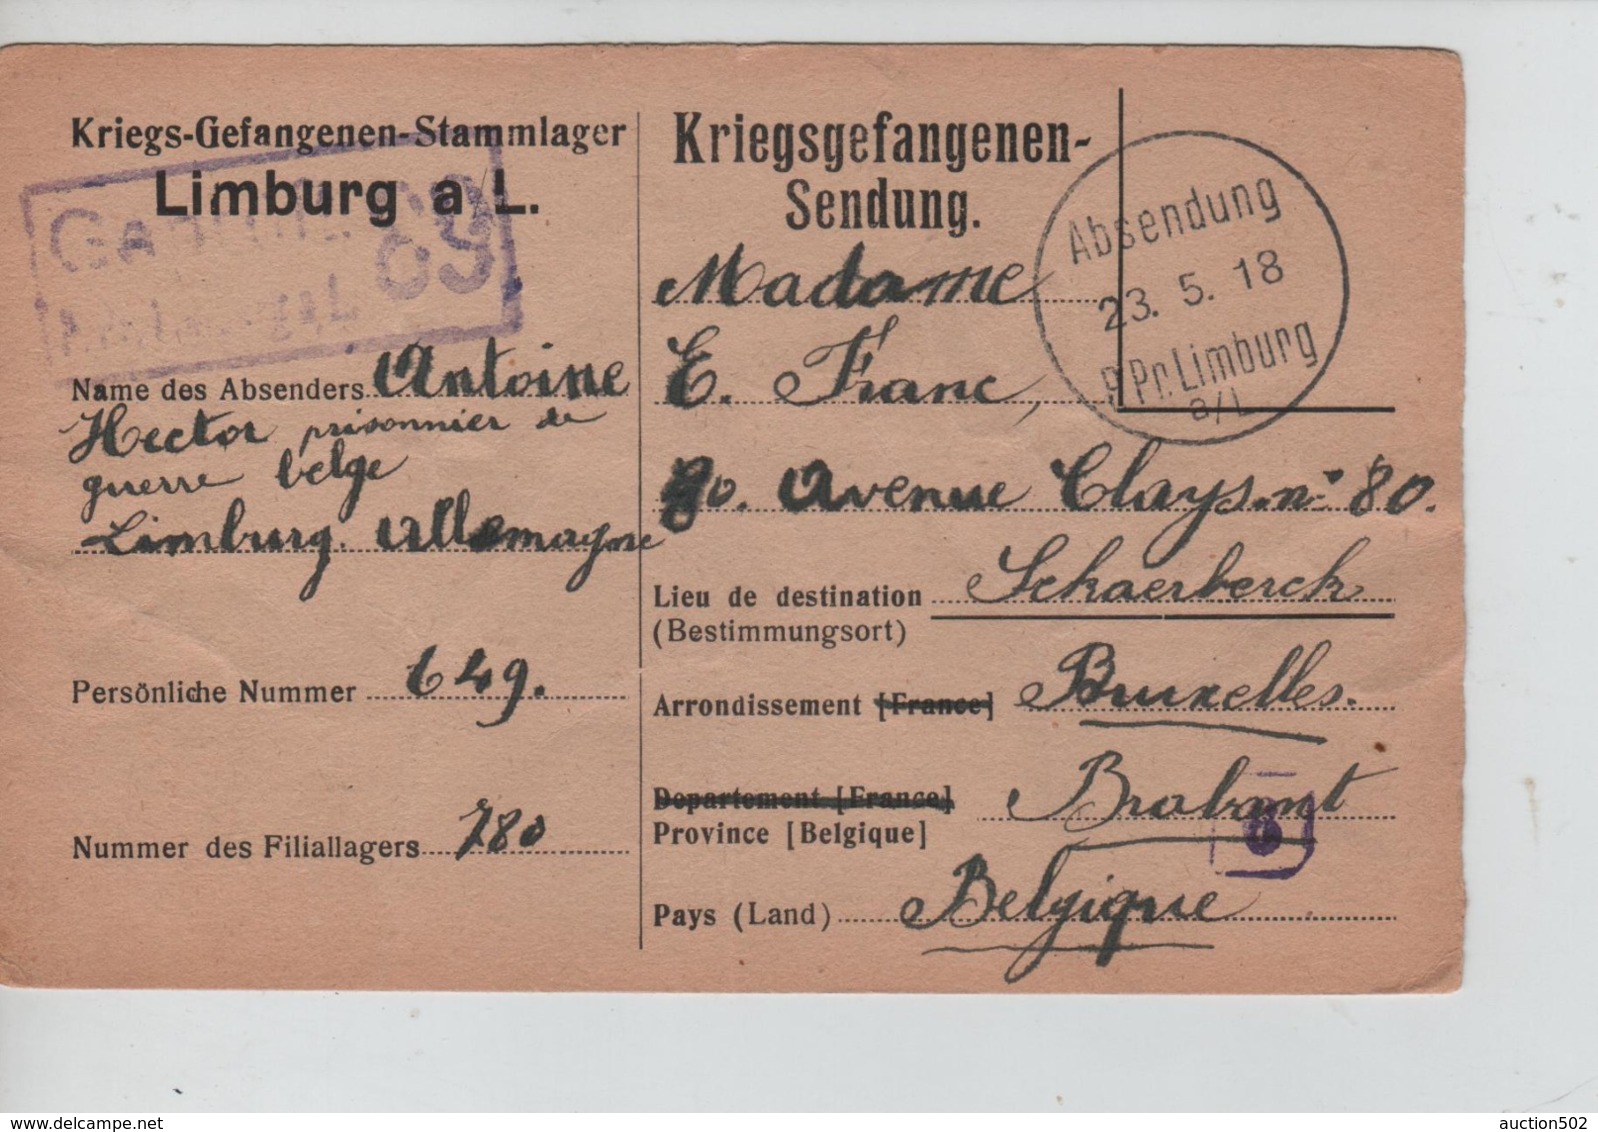 Kriegs-Gefangenen-Stammlager
Limburg a/L.
69
Name des Absenders Antoine
Hector prisonnier de
guerre belge
Limburg. Allemagne
Persönliche Nummer 649.
Nummer des Filiallagers 780
Kriegsgefangenen-
Sendung.
Absendung
23. 5. 18
P. Pr. Limburg
a/L
Madame
E. Franc,
80. Avenue Clays. n° 80.
Lieu de destination Schaerberck
(Bestimmungsort)
Arrondissement [France] Bruxelles.
Departement [France] Brabant
Province [Belgique]
6
Pays (Land) Belgique
auction502